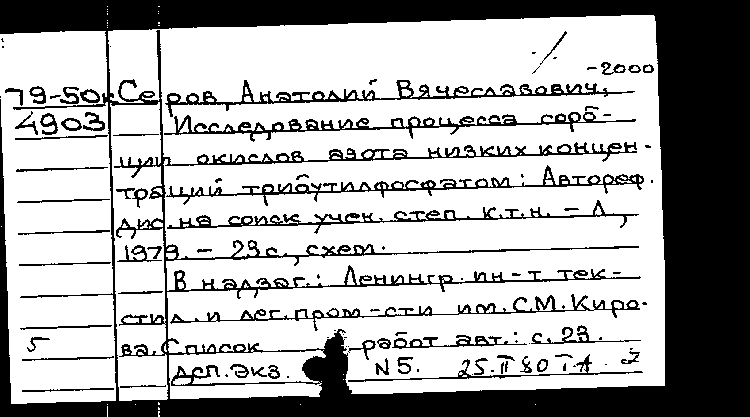 -2000
79-50к Серов, Анатолий Вячеславович,
4903 Исследование процесса сорб-
ции окислов азота низких концен-
траций трибутилфосфатом: Автореф.
дис. на соиск учен. степ. к.т.н. - Л,
1979. - 23 с., схем.
В надзаг.: Ленингр. ин-т тек-
стил. и лег. пром-сти им. С.М. Киро-
5 ва. Список работ авт.: с. 23.
ДСП. Экз. N 5. 25.II 80